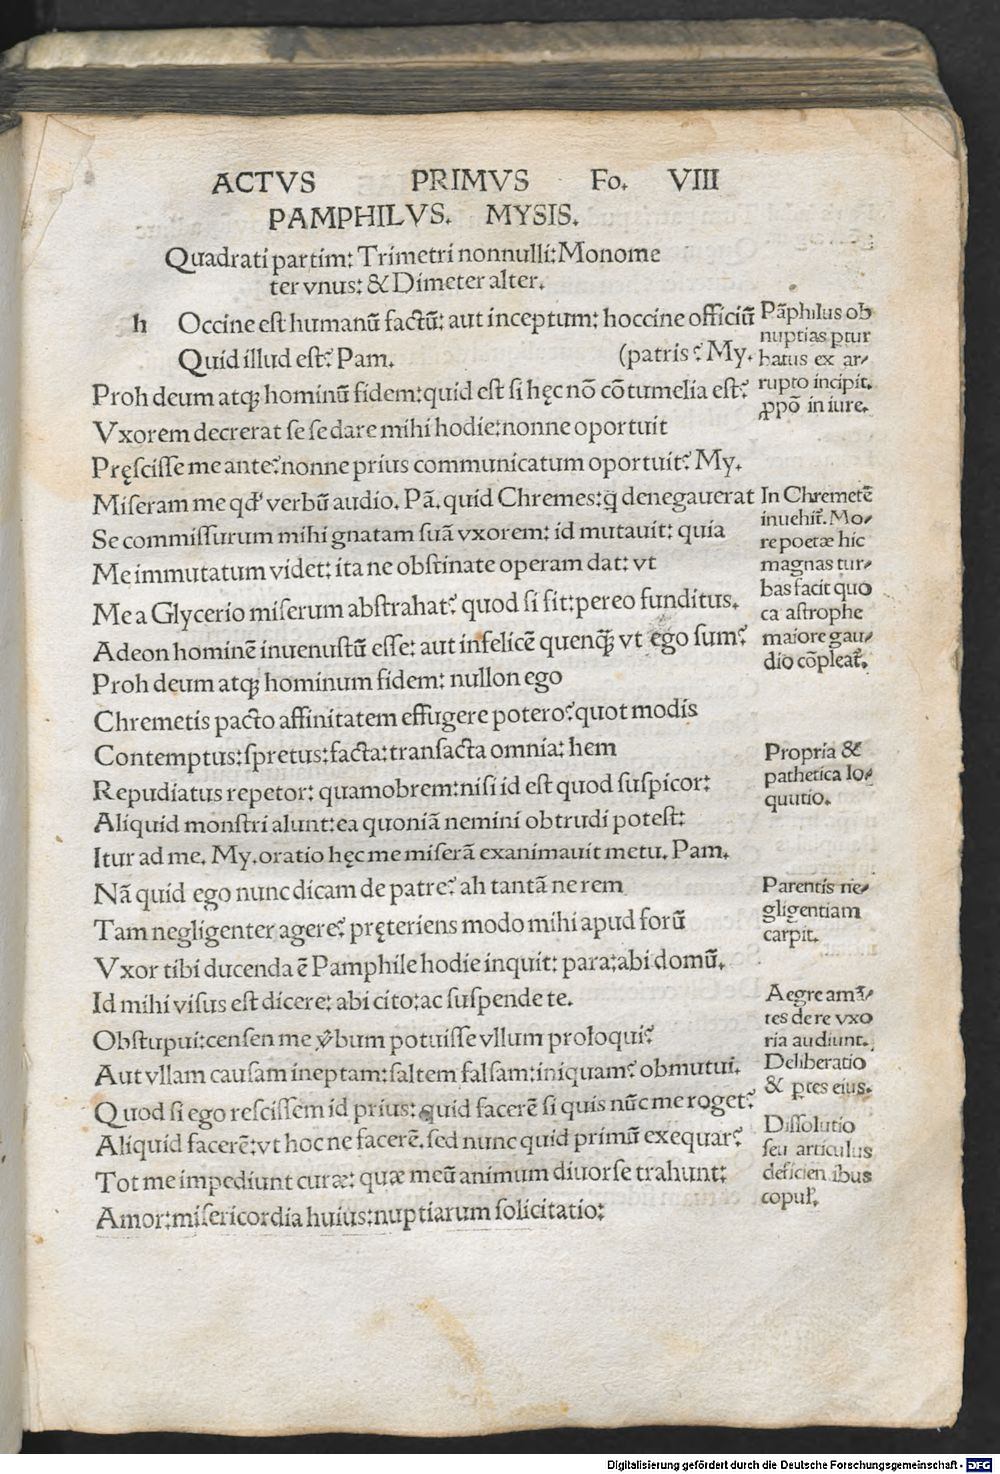 ACTVS PRIMVS Fo. VIII
PAMPHILVS. MYSIS.
Quadrati partim: Trimetri nonnulli: Monome
ter vnus: & Dimeter alter.
h Occine est humanū factū: aut inceptum: hoccine officiū
Quid illud est? Pam. (patris? My.
Proh deum atq; hominū fidem: quid est si hęc nō cōtumelia est?
Vxorem decrerat se se dare mihi hodie: nonne oportuit
Pręscisse me ante? nonne prius communicatum oportuit? My.
Miseram me qd' verbū audio. Pā. quid Chremes: q̄ denegauerat
Se commissurum mihi gnatam suā vxorem: id mutauit: quia
Me immutatum videt: ita ne obstinate operam dat: vt
Me a Glycerio miserum abstrahat? quod si fit: pereo funditus.
Adeon hominē inuenustū esse: aut infelicē quenq̄; vt ego sum?
Proh deum atq; hominum fidem: nullon ego
Chremetis pacto affinitatem effugere potero? quot modis
Contemptus: spretus: facta: transacta omnia: hem
Repudiatus repetor: quamobrem: nisi id est quod suspicor:
Aliquid monstri alunt: ea quoniā nemini obtrudi potest:
Itur ad me. My. oratio hęc me miserā exanimauit metu. Pam.
Nā quid ego nunc dicam de patre? ah tantā ne rem
Tam negligenter agere? pręteriens modo mihi apud forū
Vxor tibi ducenda ē Pamphile hodie inquit: para: abi domū.
Id mihi visus est dicere: abi cito: ac suspende te.
Obstupui: censen me v̄bum potuisse vllum proloqui?
Aut vllam causam ineptam: saltem falsam: iniquam? obmutui.
Quod si ego rescissem id prius: quid facerē si quis nūc me roget?
Aliquid facerē: vt hoc ne facerē. sed nunc quid primū exequar?
Tot me impediunt curæ: quæ meū animum diuorse trahunt:
Amor: misericordia huius: nuptiarum solicitatio:
Pāphilus ob
nuptias ꝑtur
batus ex ar-
rupto incipit.
ꝓpō in iure.
In Chremetē
inuehit̄. Mo-
re poetæ hic
magnas tur-
bas facit quo
ca astrophe
maiore gau-
dio cōpleat̄.
Propria &
pathetica lo-
quutio.
Parentis ne-
gligentiam
carpit.
Aegre amā-
tes de re vxo
ria audiunt.
Deliberatio
& ꝑtes eius.
Dissolutio
seu articulus
deficien ibus
copul'.
Digitalisierung gefördert durch die Deutsche Forschungsgemeinschaft - DFG